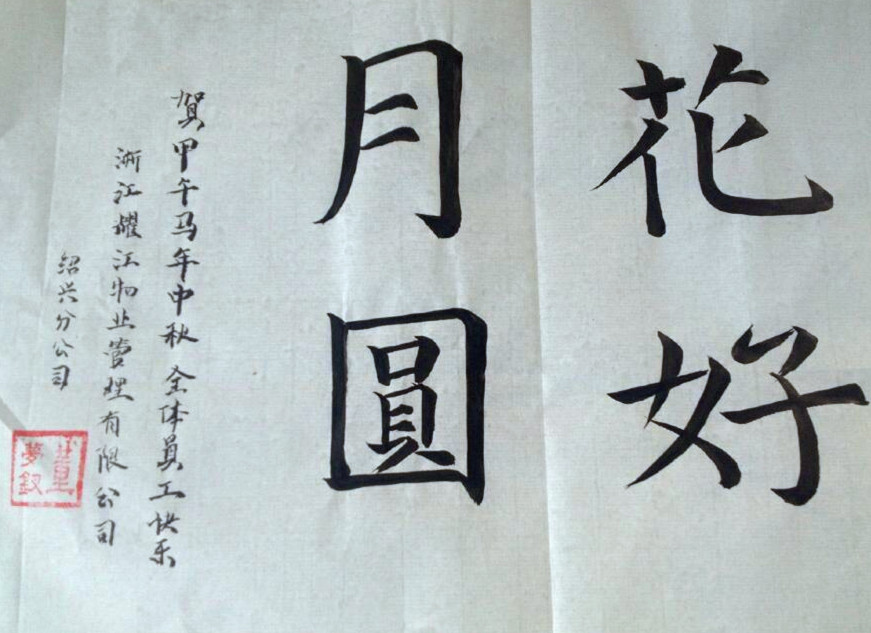 花好
月圓
贺甲午马年中秋全体员工快乐
浙江耀江物业管理有限公司
绍兴分公司
董
夢釵